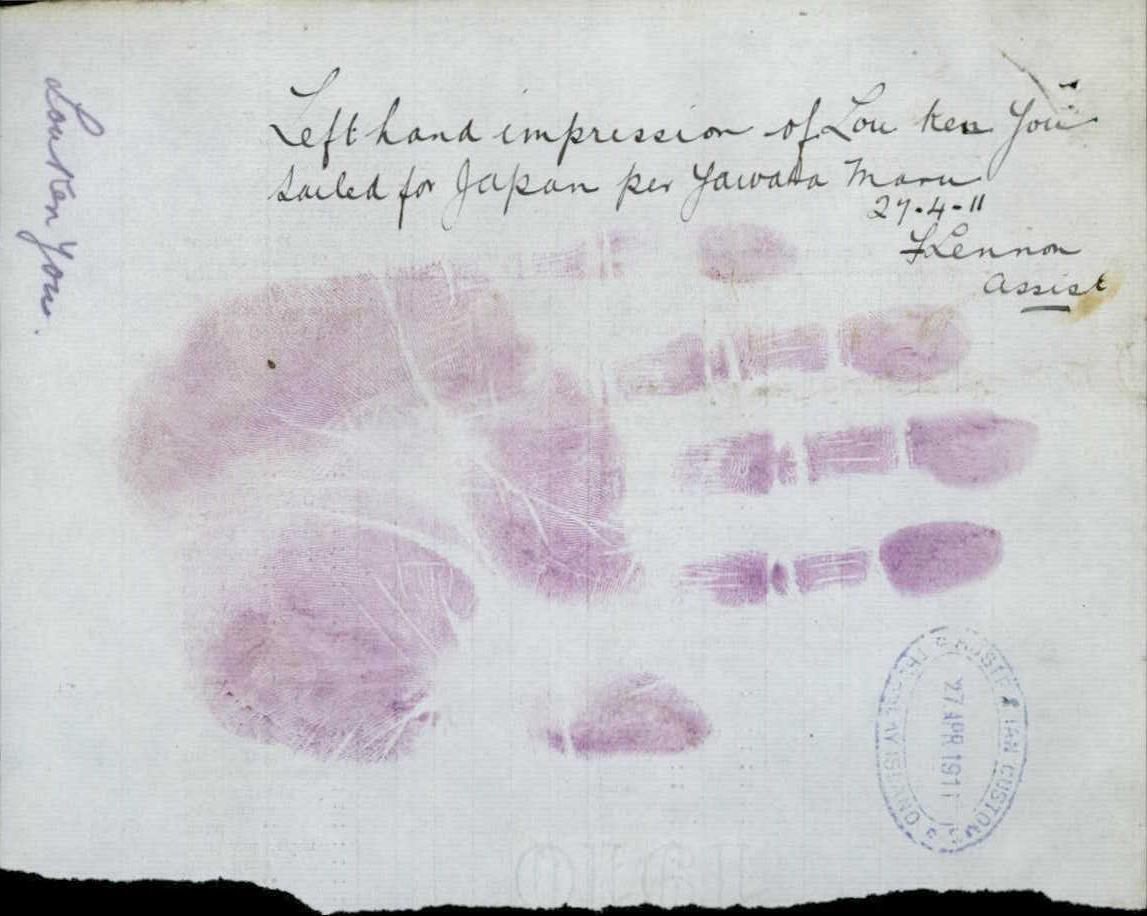 Left hand impression of Lou Ken You
Sailed for Japan per Yawata Maru
27-4-11
F Lennon
Assist
Lou Ken You.
AUSTRALIAN CUSTOMS
THURSDAY ISLAND
27 APR 1911